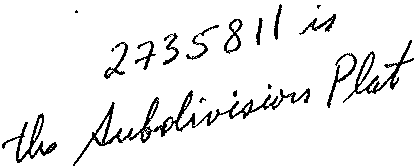 2735811 is
the Subdivision Plat